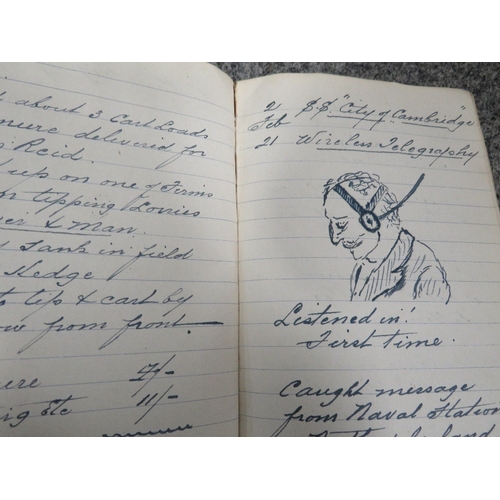 about 3 Cart Loads
delivered for
Reid.
up on one of Terms
tipping Lorries
& Man.
Tank in field
Hedge
tip & cart by
from front.
7/-
etc 11/-
2 S.S. "City of Cambridge"
Feb
21 Wireless Telegraphy
Listened in!
First time.
Caught message
from Naval Station